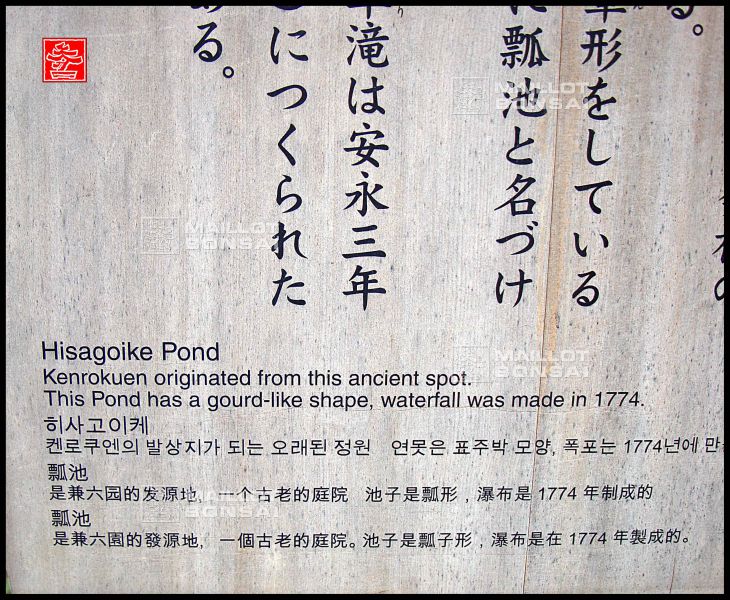 る。
筆形をしている
に瓢池と名づけ
滝は安永三年
につくられた
ある。
Hisagoike Pond
Kenrokuen originated from this ancient spot.
This Pond has a gourd-like shape, waterfall was made in 1774.
히사고이케
켄로쿠엔의 발상지가 되는 오래된 정원 연못은 표주박 모양, 폭포는 1774년에
瓢池
是兼六园的发源地, 一个古老的庭院 池子是瓢形，瀑布是 1774 年制成的
瓢池
是兼六園的發源地, 一個古老的庭院。池子是瓢子形，瀑布是在 1774 年製成的。
MAILLOT
BONSAI
MAILLOT
BONSAI
MAILLOT
BONSAI
MAILLOT
BONSAI